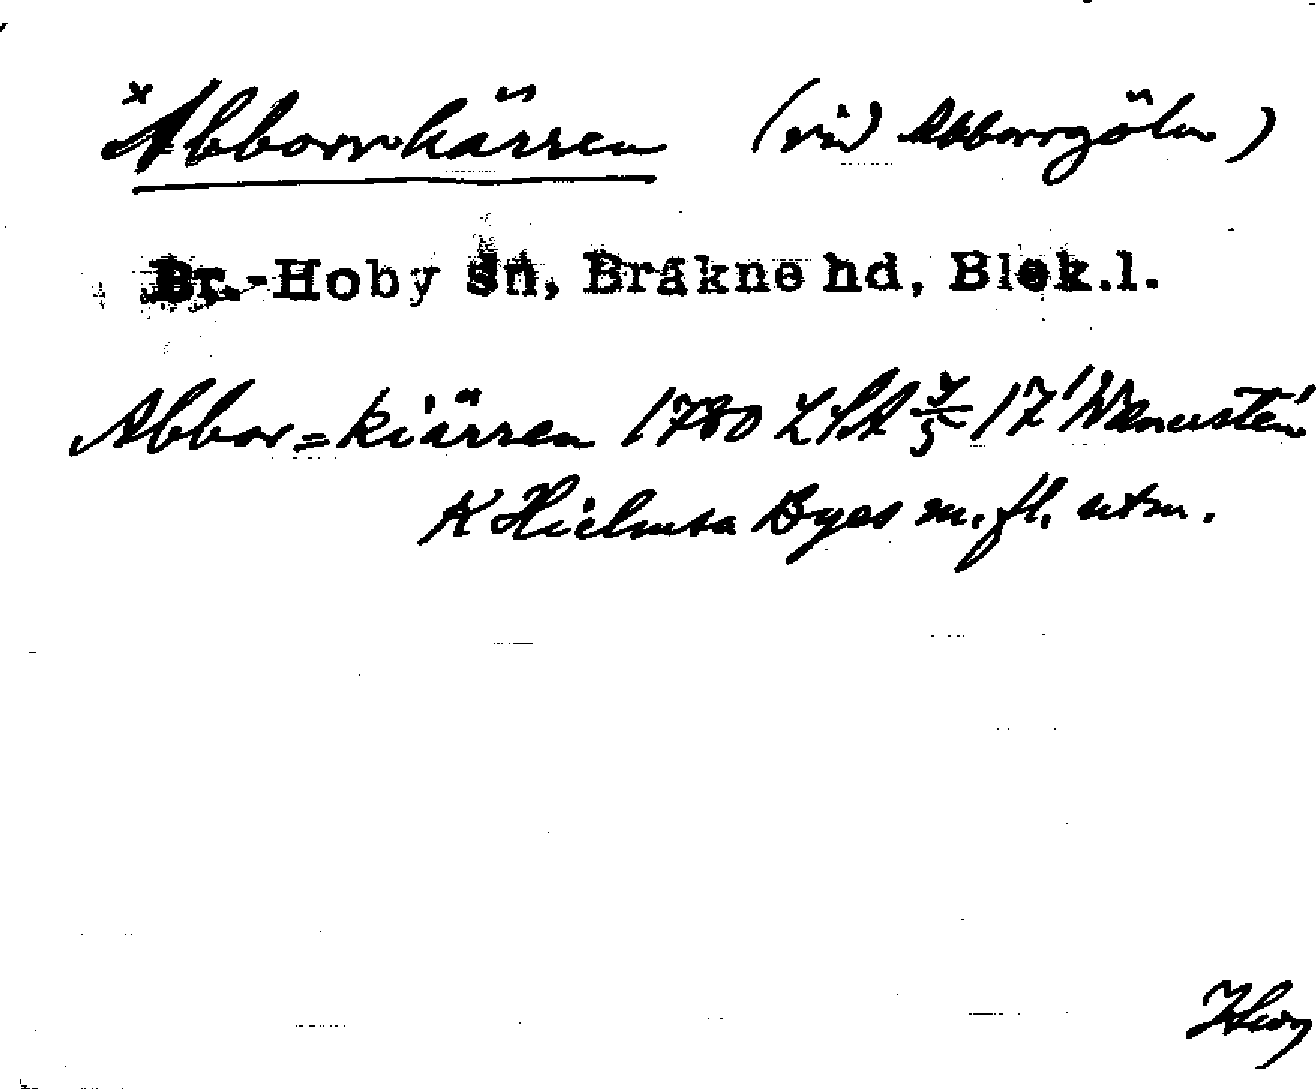 ×Abborrkärren (vid Abborrgölen)
Br.-Hoby sn, Bräkne hd, Blek.l.
Abbor=kiärren 1780 LSA 17 Wanusten
K Hielmsa Byes m.fl. utm.